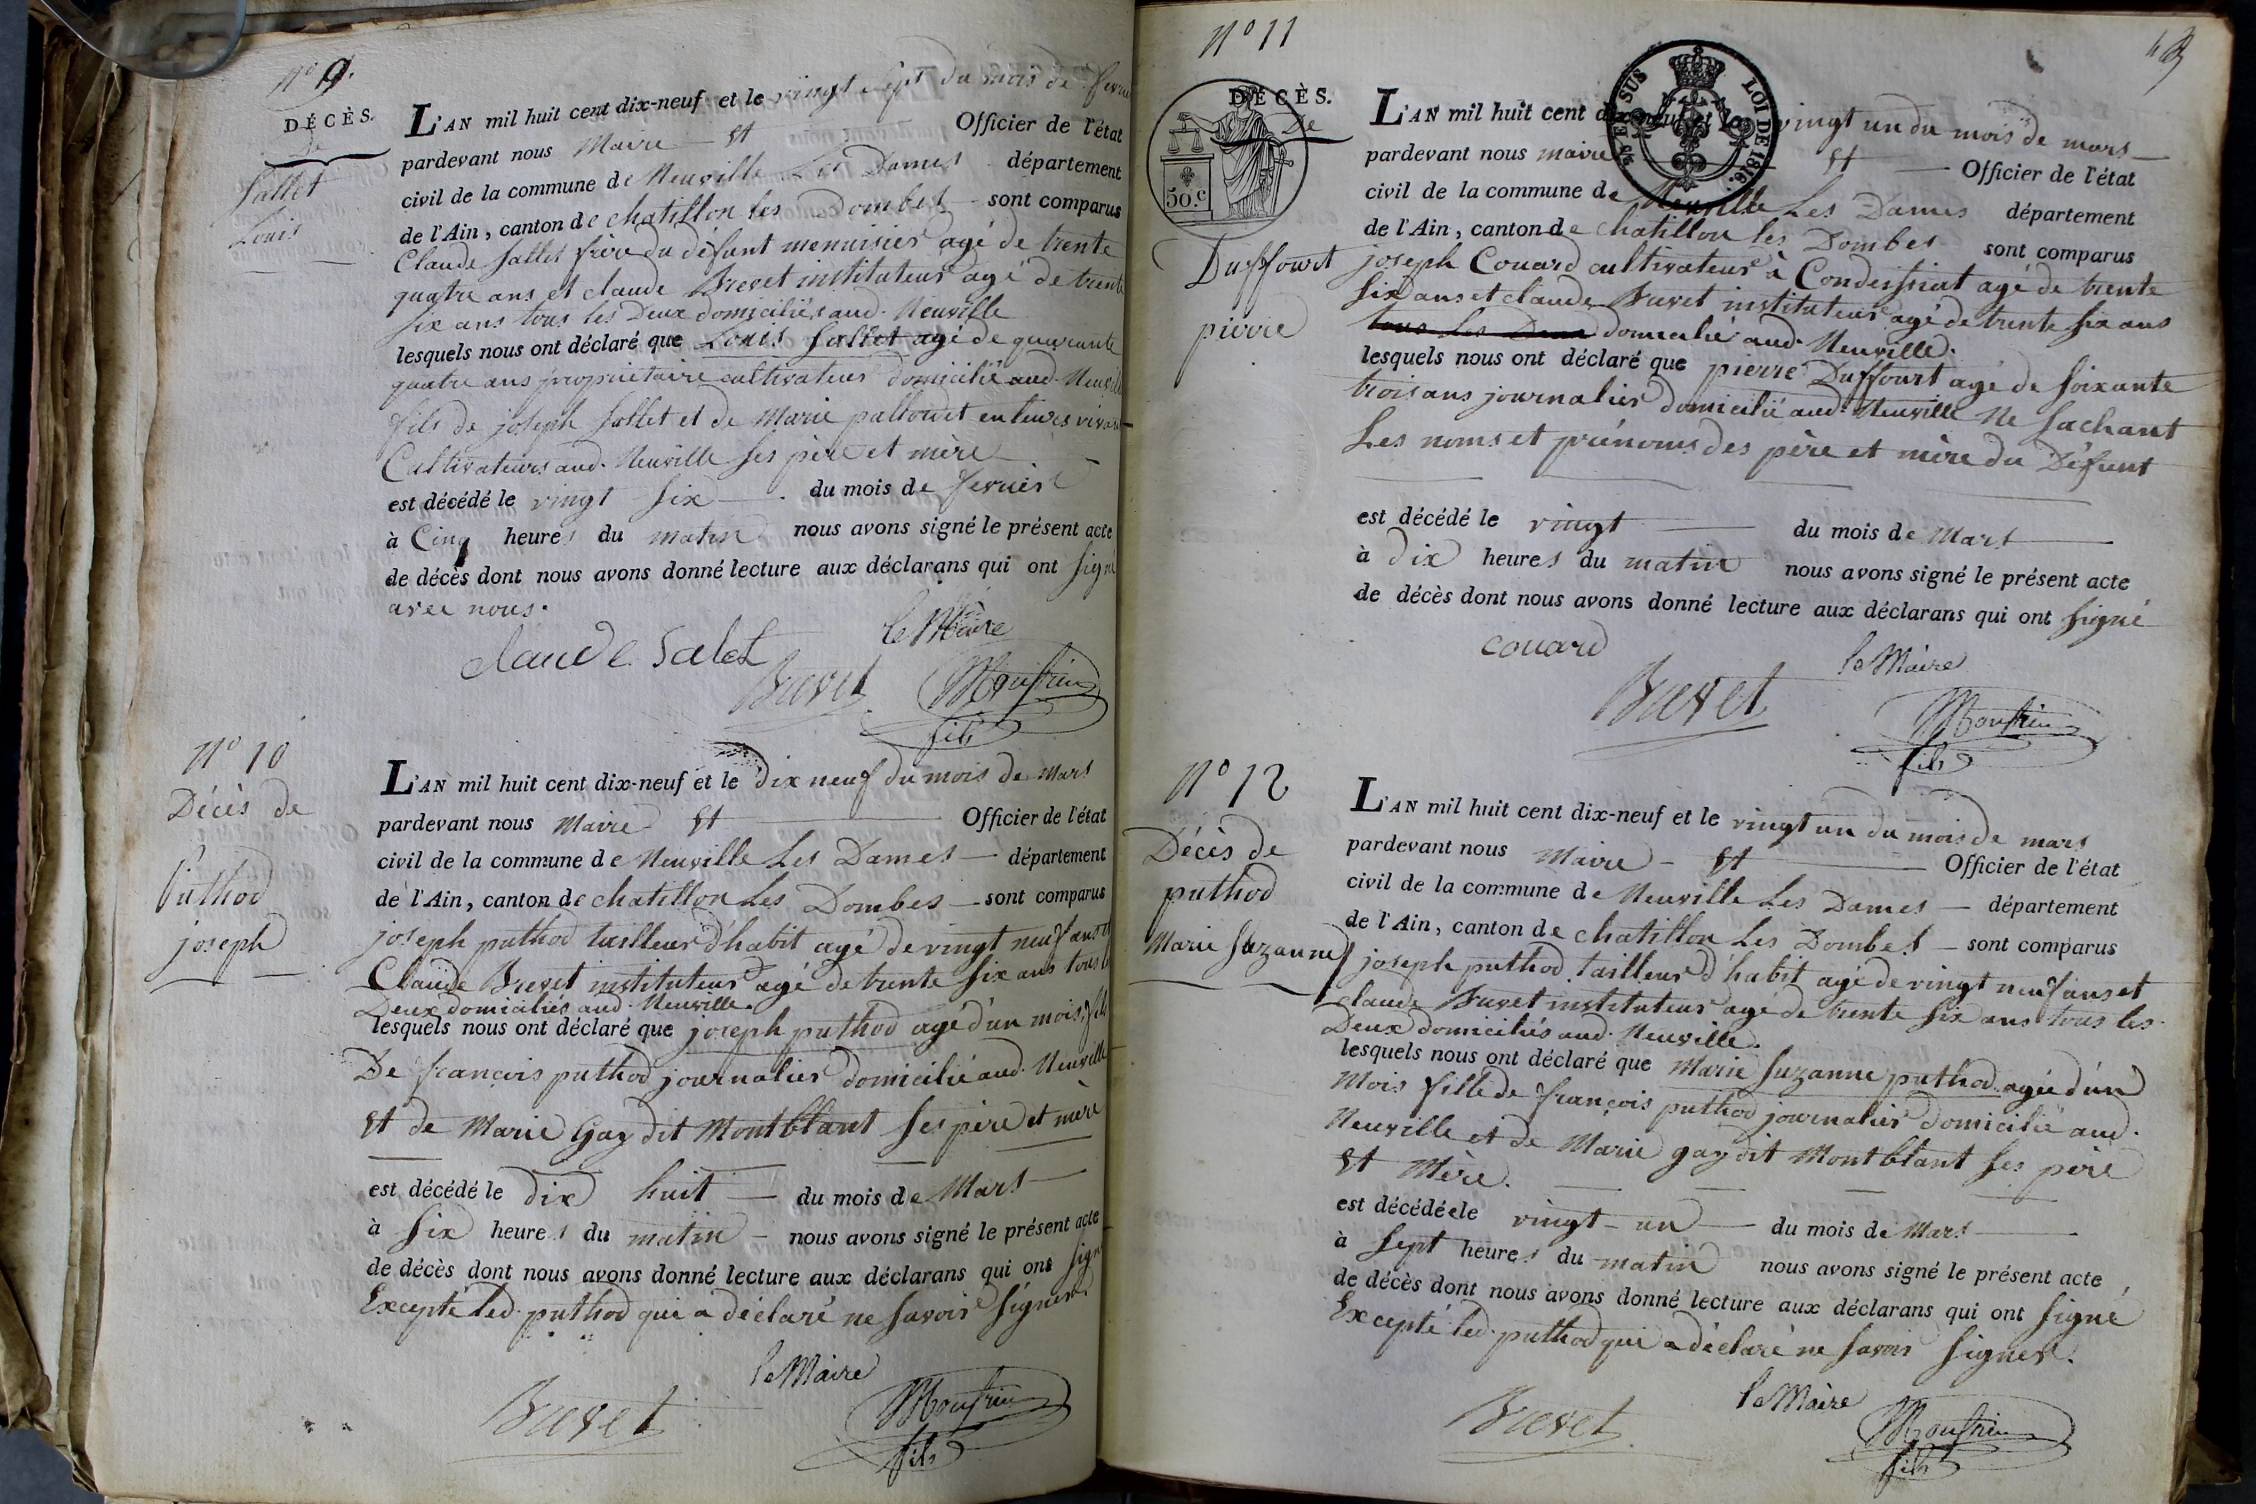 N° 9.
DÉCÈS.
De
Sallet
Louis
L'AN mil huit cent dix-neuf et le vingt sept du mois de fevrier
pardevant nous Maire Et Officier de l'état
civil de la commune de Neuville Les Dames département
de l'Ain, canton de chatillon les Dombes sont comparus
Claude Sallet frère du défunt menuisier agé de trente
quatre ans et claude Brevet instituteur agé de trente
six ans tous les Deux domiciliés aud. Neuville
lesquels nous ont déclaré que Louis Sallet agé de quarante
quatre ans proprietaire cultivateur domicilié aud. Neuville
fils de joseph Sallet et de Marie pallouet en leurs vivant
Cultivateurs aud. Neuville ses père et mère
est décédé le vingt six du mois de fevrier
à Cinq heures du matin nous avons signé le présent acte
de décès dont nous avons donné lecture aux déclarans qui ont signé
avec nous.
le Maire
claude Salet
Brevet
fils
N° 10
Décès de
Puthod
joseph
L'AN mil huit cent dix-neuf et le dix neuf du mois de Mars
pardevant nous Maire Et Officier de l'état
civil de la commune de Neuville Les Dames département
de l'Ain, canton de chatillon Les Dombes sont comparus
joseph puthod tailleur d'habit agé de vingt neuf ans et
Claude Brevet instituteur agé de trente six ans tous les
Deux domiciliés aud. Neuville.
lesquels nous ont déclaré que joseph puthod agé d'un mois, fils
De françois puthod journalier domicilié aud. Neuville
Et de Marie Gay dit Montblant ses père et mère
est décédé le dix huit du mois de Mars
à six heures du matin nous avons signé le présent acte
de décès dont nous avons donné lecture aux déclarans qui ont signé
Excepté led. puthod qui a déclaré ne savoir signer.
le Maire
Brevet
fils
N° 11
DÉCÈS.
De
50.c
LOI DE 1816.
Duffourt
pierre
L'AN mil huit cent dix-neuf et le vingt un du mois de mars
pardevant nous maire Et Officier de l'état
civil de la commune de Neuville Les Dames département
de l'Ain, canton de chatillon les Dombes sont comparus
joseph Couard cultivateur à Condeissiat agé de trente
six ans et claude Brevet instituteur agé de trente six ans
tous les Deux domicilié aud. Neuville.
lesquels nous ont déclaré que pierre Duffourt agé de soixante
trois ans journalier domicilié aud. Neuville Ne sachant
Les noms et prénoms des père et mère du Défunt
est décédé le vingt du mois de Mars
à dix heures du matin nous avons signé le présent acte
de décès dont nous avons donné lecture aux déclarans qui ont signé
couard
le Maire
Brevet
fils
N° 12
Décès de
puthod
Marie Suzanne
L'AN mil huit cent dix-neuf et le vingt un du mois de mars
pardevant nous Maire Et Officier de l'état
civil de la commune de Neuville Les Dames département
de l'Ain, canton de chatillon Les Dombes sont comparus
joseph puthod tailleur d'habit agé de vingt neuf ans et
claude Brevet instituteur agé de trente six ans tous les
Deux domiciliés aud. Neuville.
lesquels nous ont déclaré que Marie Suzanne puthod agée d'un
Mois fille de françois puthod journalier domicilié aud.
Neuville et de Marie gay dit Montblant ses père
Et Mère.
est décédée le vingt un du mois de Mars
à sept heures du matin nous avons signé le présent acte
de décès dont nous avons donné lecture aux déclarans qui ont signé
Excepté led. puthod qui a déclaré ne savoir signer.
le Maire
Brevet
fils